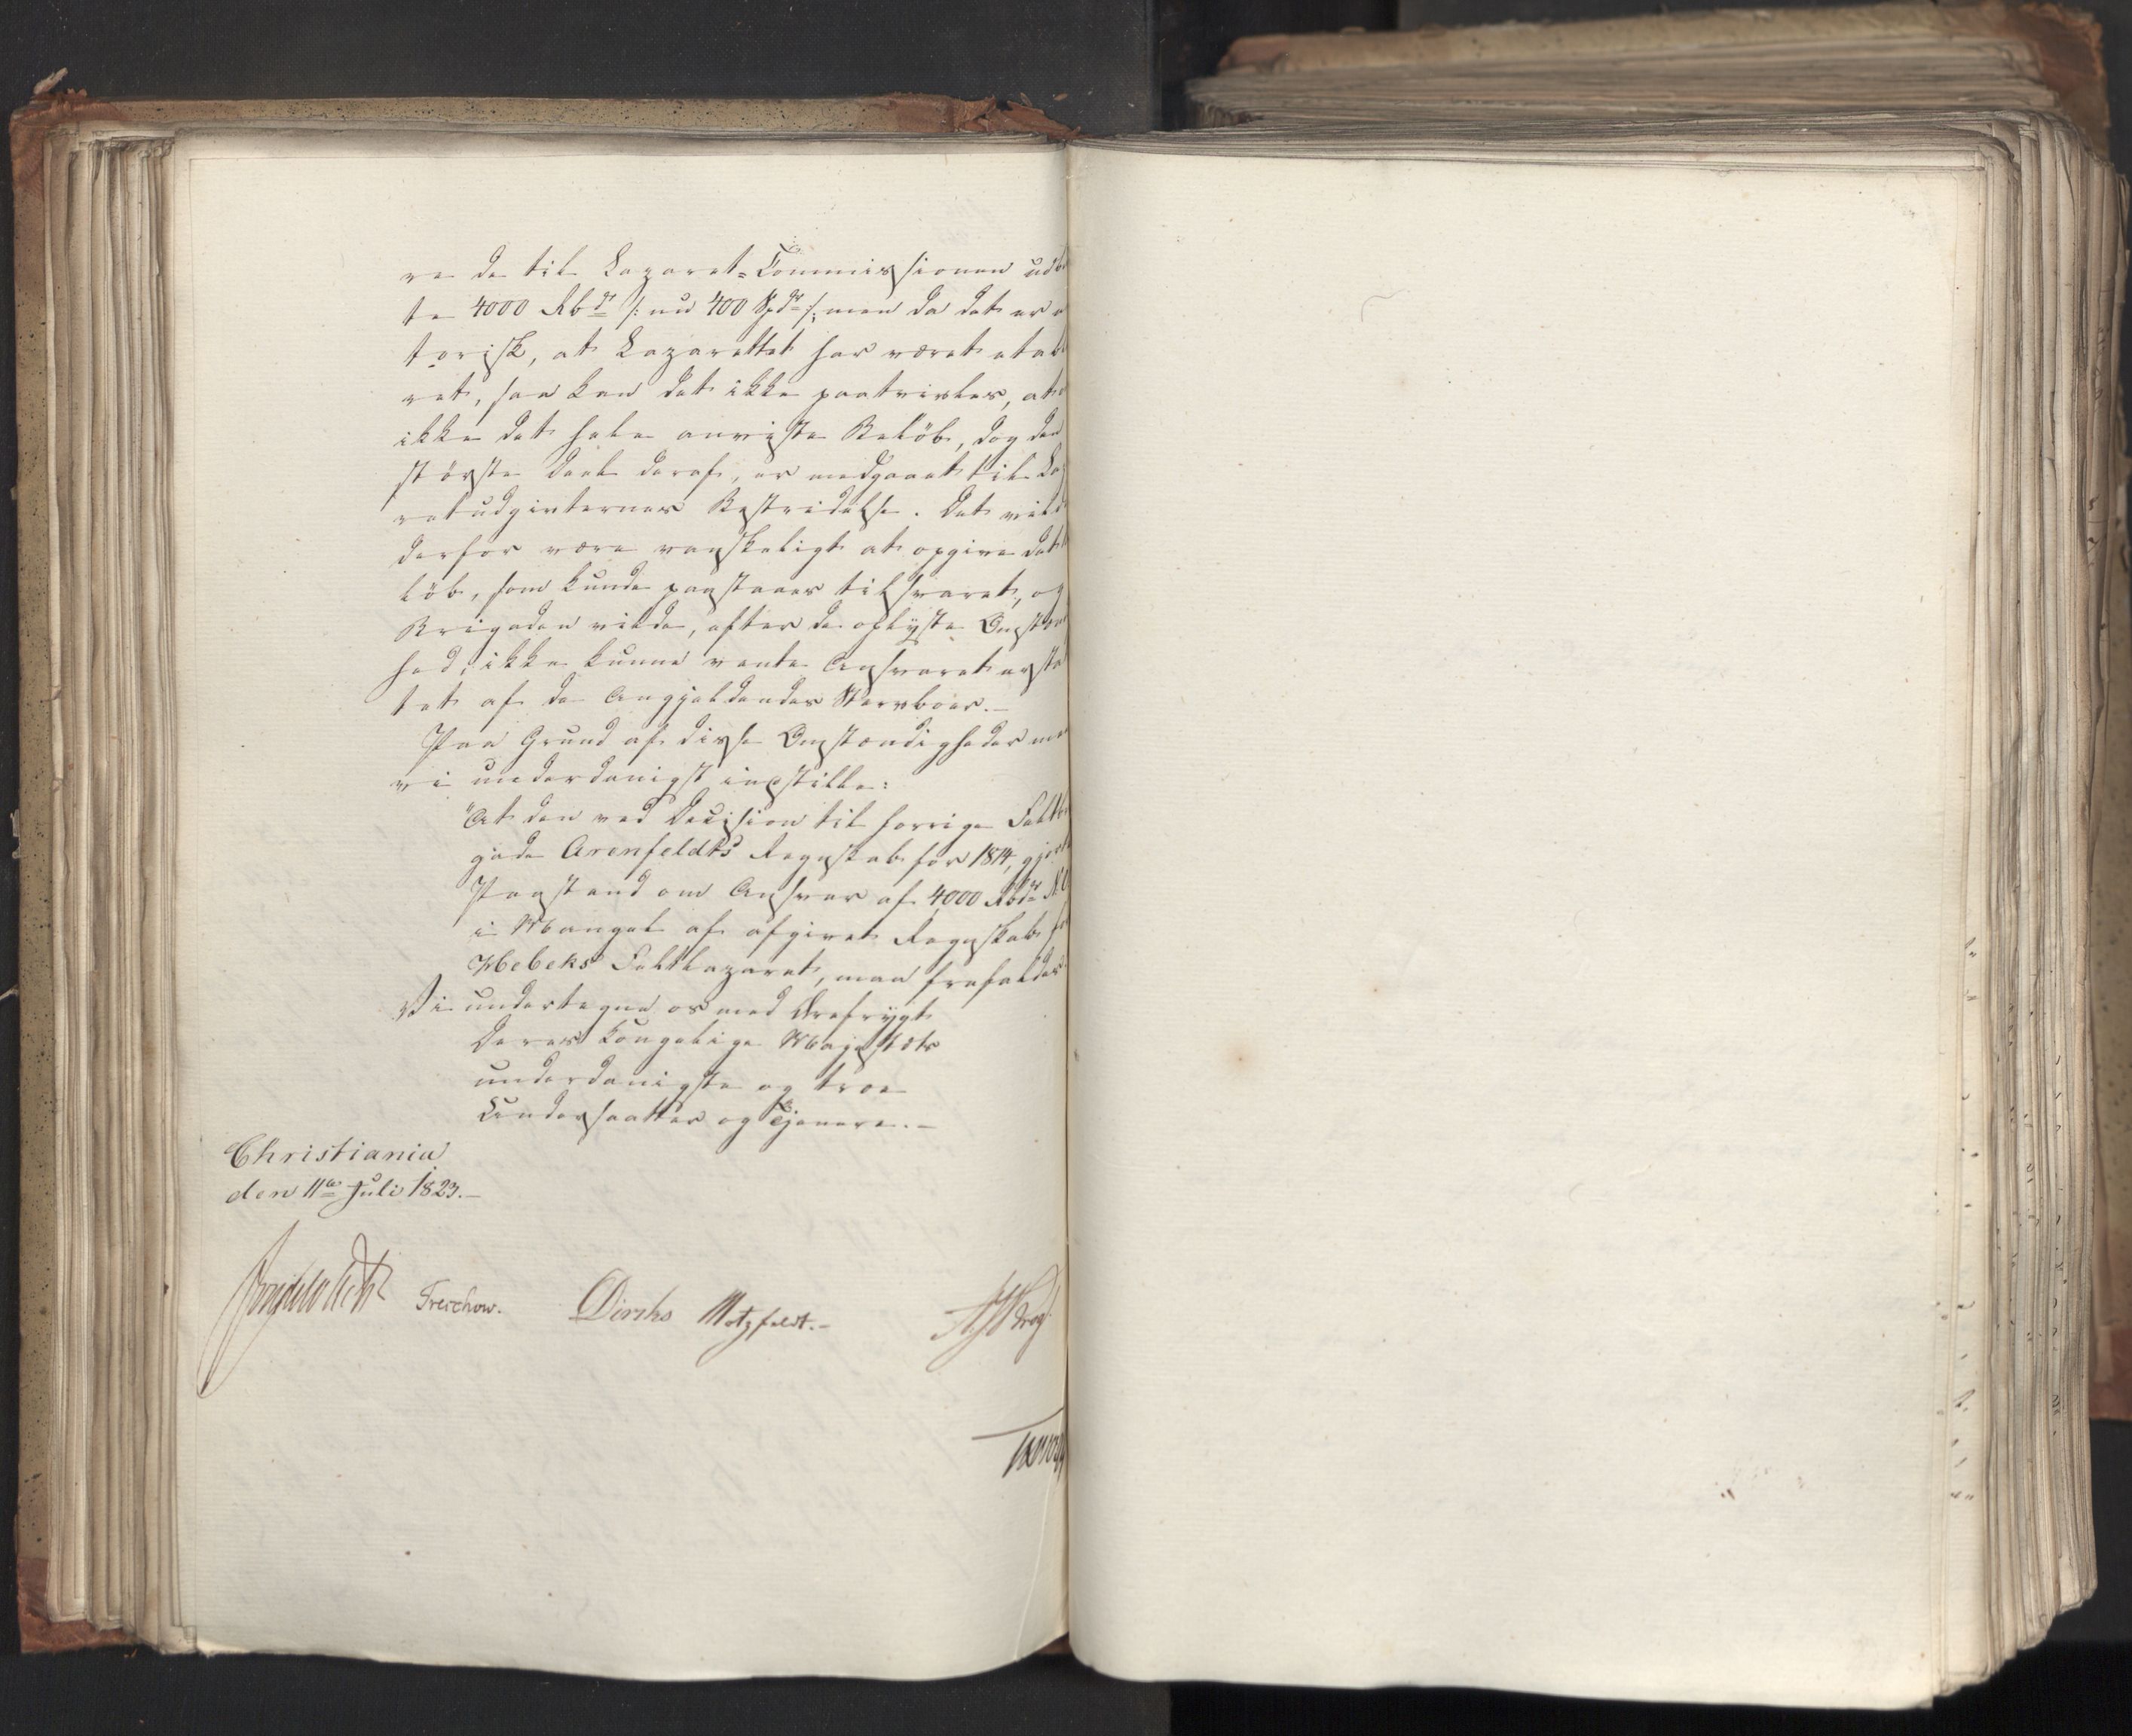 re de til Lazaret-Commissionen udbe
te 4000 Rbdr /: nu 400 Spdr :/ men da det er n
torisk, at Lazarettet har været etab
ret, saa kan det ikke paatvivles, at
ikke det hele anviste Beløb, dog den
største Deel deraf, er medgaaet til La
retudgivternes Bestridelse. Det vild
derfor være vanskeligt at opgive det
løb, som kunde paastaaes tilsvaret, og
Brigaden vilde, efter de oplyste Omstæ
hed, ikke kunne vente Ansvaret ersta
tet af de Angjeldendes Stervboer.-
Paa Grund af disse Omstændigheder maa
vi underdanigst indstille:
"At den ved Decision til forrige Feltbr
gade Arenfeldts Regnskab for 1814, gjort
Paastand om Ansvar af 4000 Rbdr N.
i Mangel af afgivet Regnskab for
Mebeks Feltlazaret, maa frafaldes
Vi undertegne os med Ærefrygt
Deres Kongelige Majestæts
underdanigste og troe
Undersaatter og Tjenere.-
Christiania
den 11te Juli 1823.-
Treschow. Diriks Motzfeldt.-